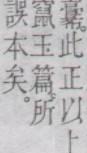 橐此正以上
竄玉篇所
誤本矣。